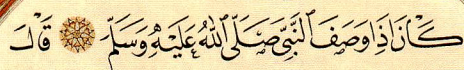 كَانَ اِذَا وَصَفَ النَّبِيَّ صَلَّى اللهُ عَلَيْهِ وَسَلَّمَ ۞ قَالَ